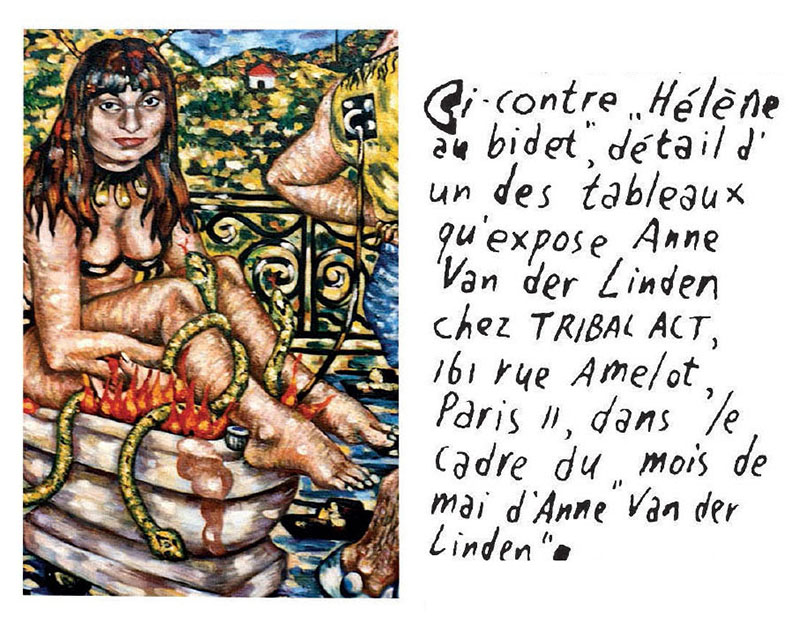 Ci-contre „Hélène
au bidet", détail d'
un des tableaux
qu'expose Anne
Van der Linden
chez TRIBAL ACT,
161 rue Amelot,
Paris 11, dans le
cadre du „mois de
mai d'Anne" Van der
Linden".